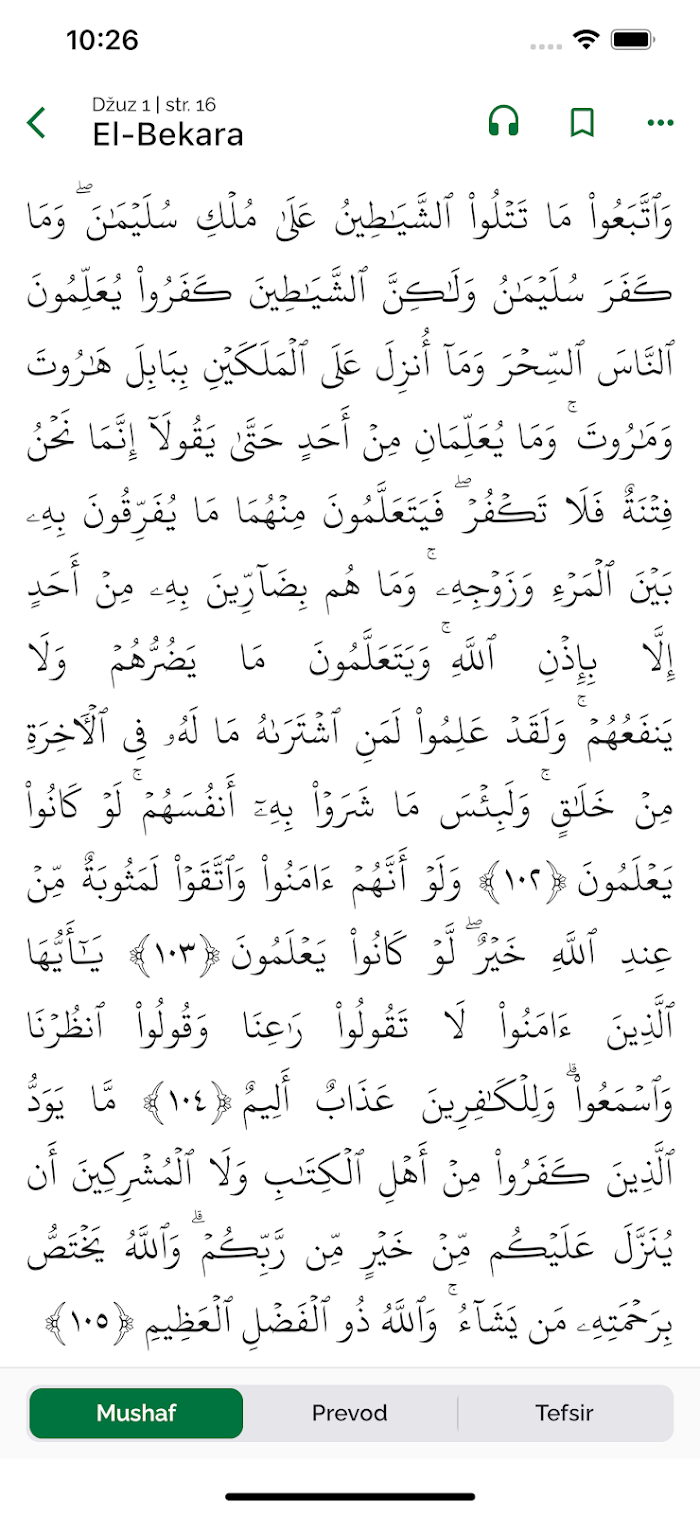 10:26
Džuz 1 | str. 16
El-Bekara
وَٱتَّبَعُوا۟ مَا تَتْلُوا۟ ٱلشَّيَـٰطِينُ عَلَىٰ مُلْكِ سُلَيْمَـٰنَ ۖ وَمَا
كَفَرَ سُلَيْمَـٰنُ وَلَـٰكِنَّ ٱلشَّيَـٰطِينَ كَفَرُوا۟ يُعَلِّمُونَ
ٱلنَّاسَ ٱلسِّحْرَ وَمَآ أُنزِلَ عَلَى ٱلْمَلَكَيْنِ بِبَابِلَ هَـٰرُوتَ
وَمَـٰرُوتَ ۚ وَمَا يُعَلِّمَانِ مِنْ أَحَدٍ حَتَّىٰ يَقُولَآ إِنَّمَا نَحْنُ
فِتْنَةٌ فَلَا تَكْفُرْ ۖ فَيَتَعَلَّمُونَ مِنْهُمَا مَا يُفَرِّقُونَ بِهِۦ
بَيْنَ ٱلْمَرْءِ وَزَوْجِهِۦ ۚ وَمَا هُم بِضَآرِّينَ بِهِۦ مِنْ أَحَدٍ
إِلَّا بِإِذْنِ ٱللَّهِ ۚ وَيَتَعَلَّمُونَ مَا يَضُرُّهُمْ وَلَا
يَنفَعُهُمْ ۚ وَلَقَدْ عَلِمُوا۟ لَمَنِ ٱشْتَرَىٰهُ مَا لَهُۥ فِى ٱلْـَٔاخِرَةِ
مِنْ خَلَـٰقٍ ۚ وَلَبِئْسَ مَا شَرَوْا۟ بِهِۦٓ أَنفُسَهُمْ ۚ لَوْ كَانُوا۟
يَعْلَمُونَ ﴿١٠٢﴾ وَلَوْ أَنَّهُمْ ءَامَنُوا۟ وَٱتَّقَوْا۟ لَمَثُوبَةٌ مِّنْ
عِندِ ٱللَّهِ خَيْرٌ ۖ لَّوْ كَانُوا۟ يَعْلَمُونَ ﴿١٠٣﴾ يَـٰٓأَيُّهَا
ٱلَّذِينَ ءَامَنُوا۟ لَا تَقُولُوا۟ رَٰعِنَا وَقُولُوا۟ ٱنظُرْنَا
وَٱسْمَعُوا۟ ۗ وَلِلْكَـٰفِرِينَ عَذَابٌ أَلِيمٌ ﴿١٠٤﴾ مَّا يَوَدُّ
ٱلَّذِينَ كَفَرُوا۟ مِنْ أَهْلِ ٱلْكِتَـٰبِ وَلَا ٱلْمُشْرِكِينَ أَن
يُنَزَّلَ عَلَيْكُم مِّنْ خَيْرٍ مِّن رَّبِّكُمْ ۗ وَٱللَّهُ يَخْتَصُّ
بِرَحْمَتِهِۦ مَن يَشَآءُ ۚ وَٱللَّهُ ذُو ٱلْفَضْلِ ٱلْعَظِيمِ ﴿١٠٥﴾
Mushaf Prevod Tefsir